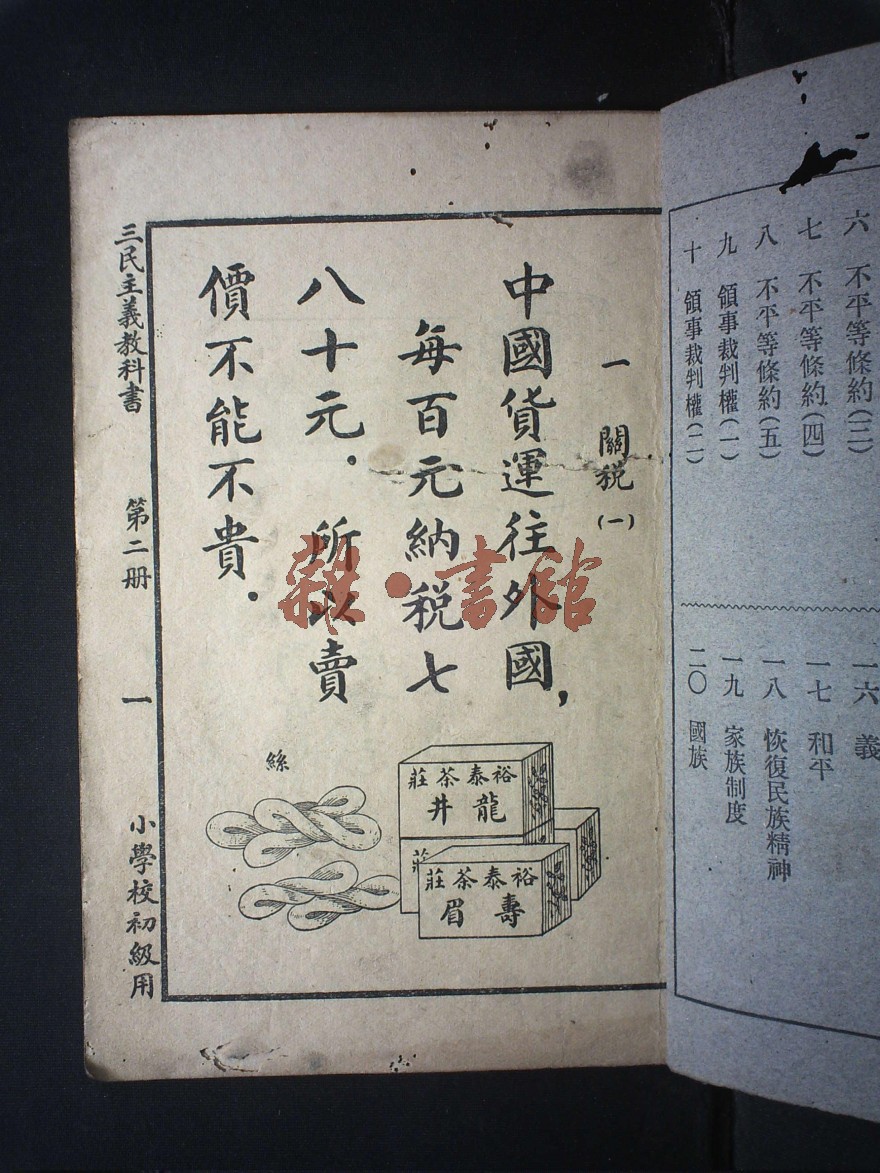 六　不平等條約(三)
七　不平等條約(四)
八　不平等條約(五)
九　領事裁判權(一)
十　領事裁判權(二)
一六　義
一七　和平
一八　恢復民族精神
一九　家族制度
二〇　國族
一　關稅(一)
中國貨運往外國，
每百元納稅七
八十元．所以賣
價不能不貴．
絲
裕泰茶莊
龍井
莊
裕泰茶莊
壽眉
三民主義教科書　第二册　一　小學校初級用
雜·書館